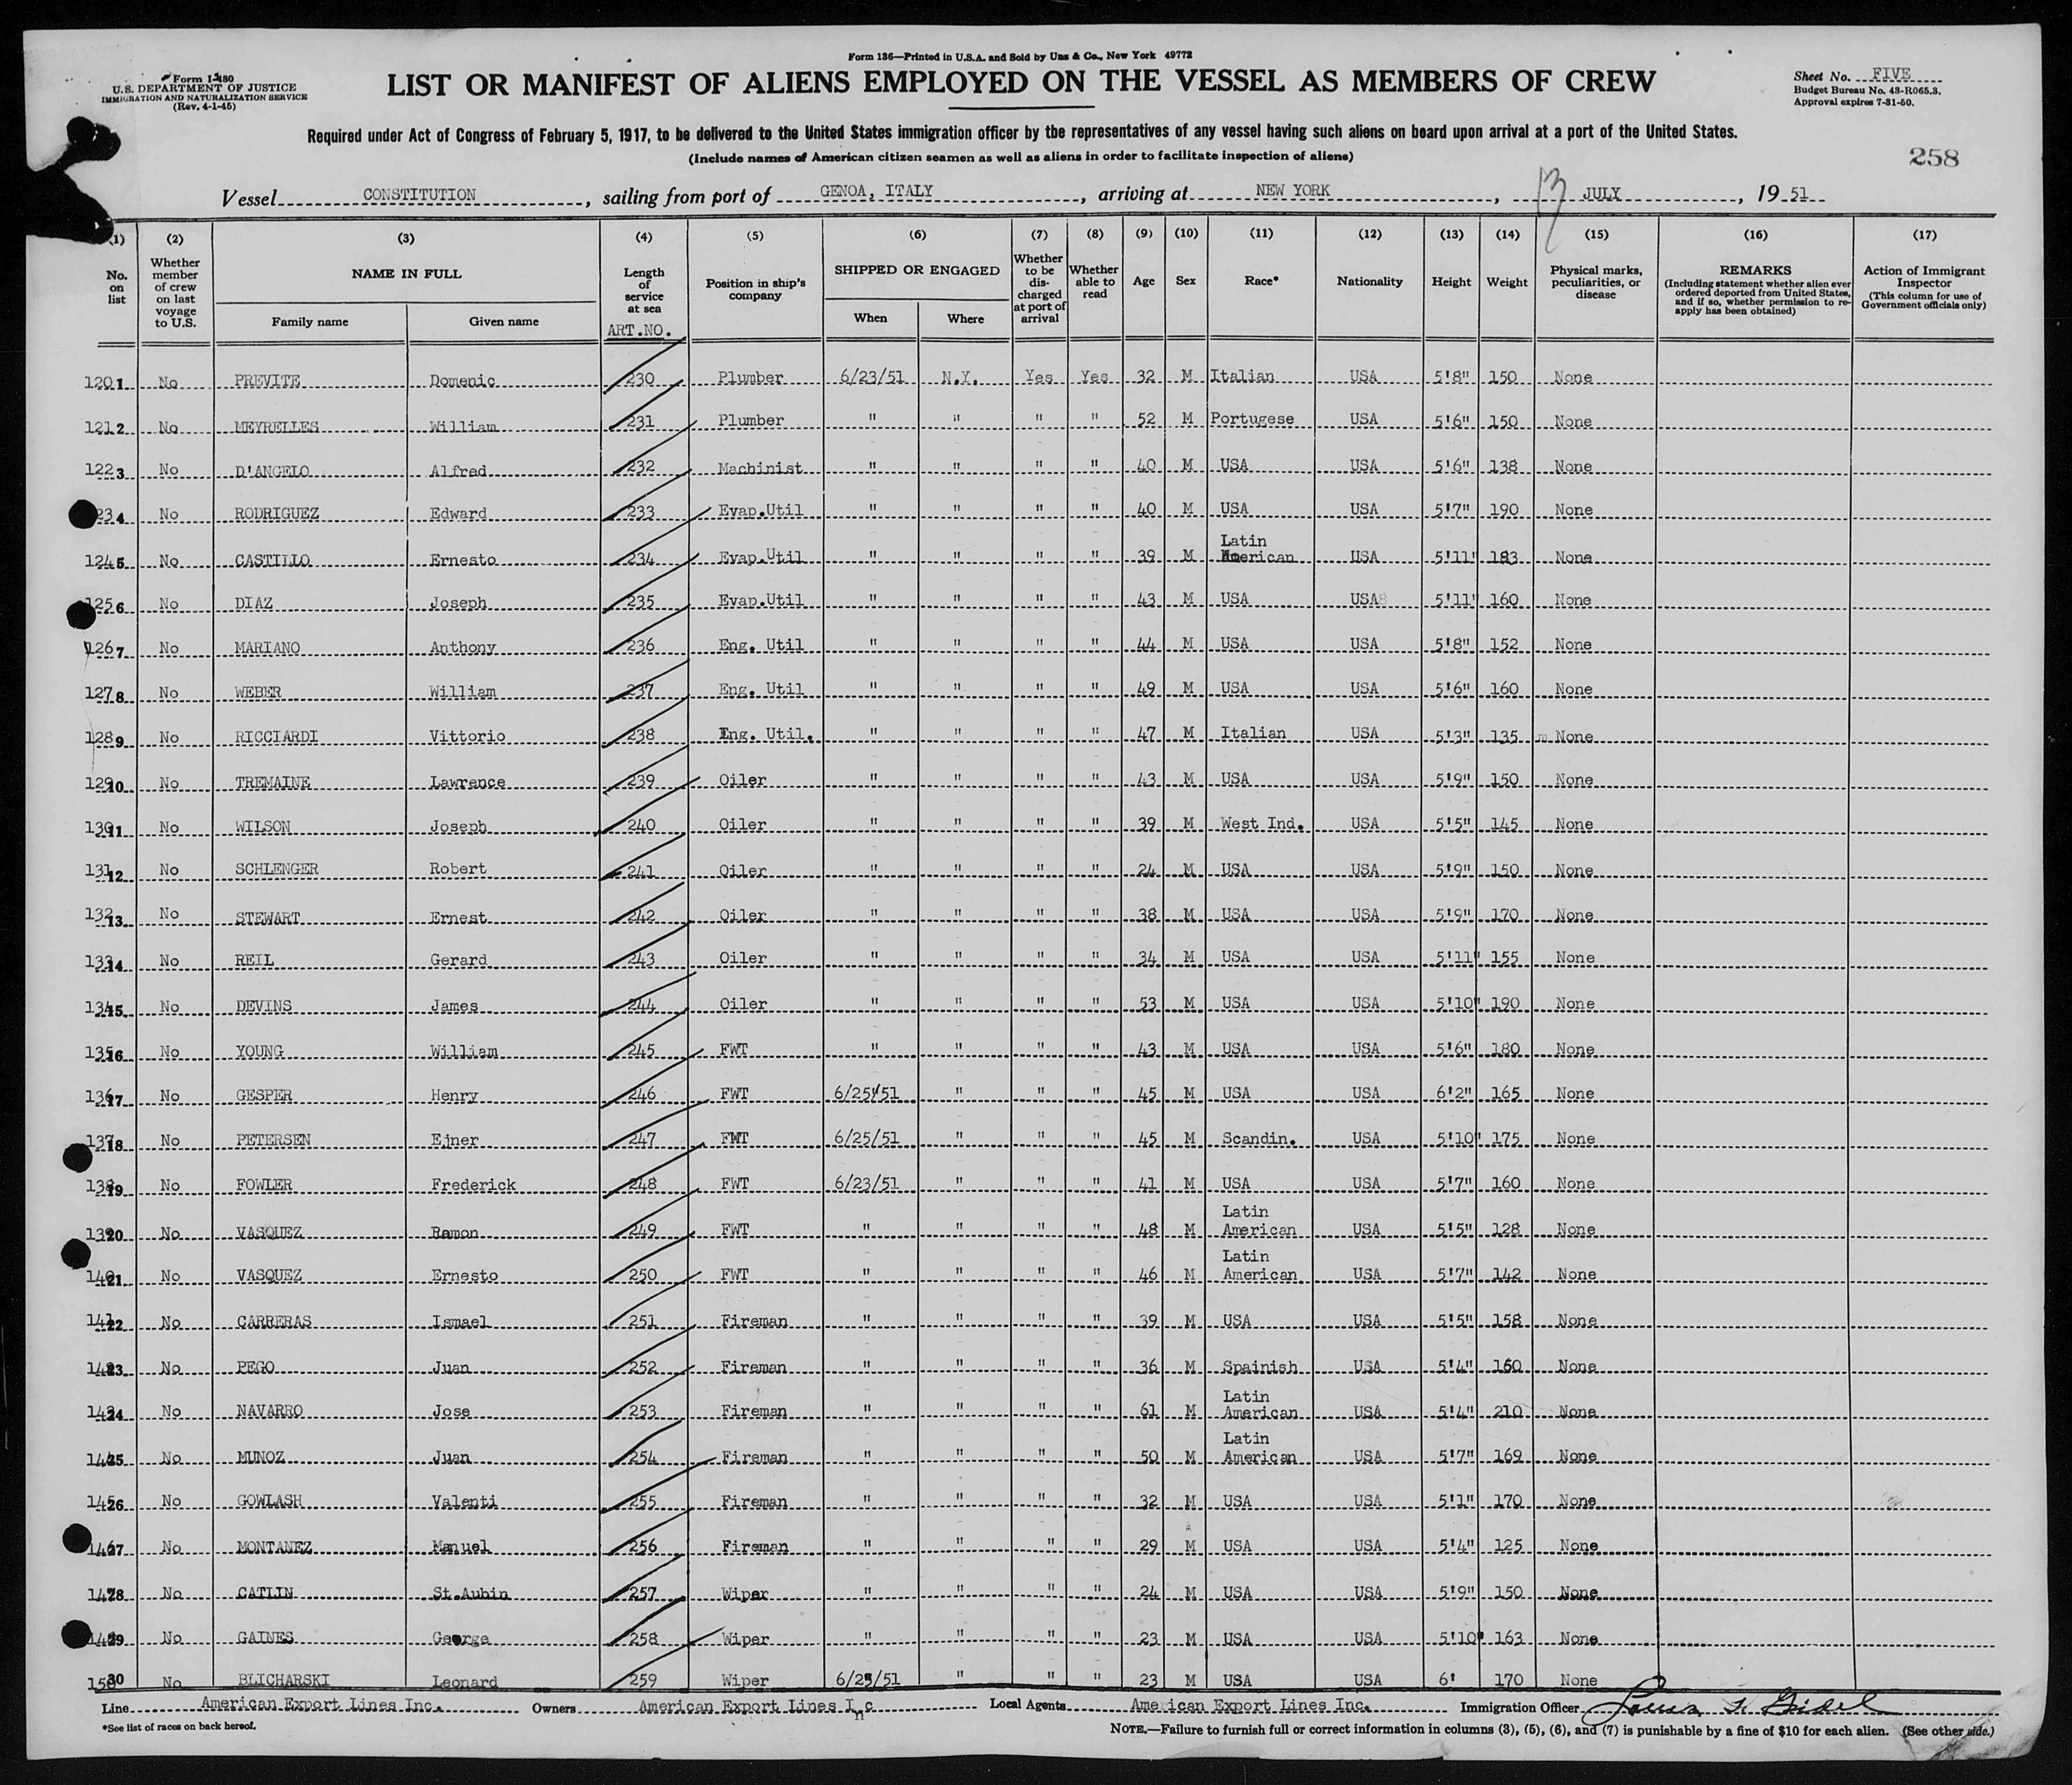 Form 136—Printed in U.S.A. and Sold by Unz & Co., New York 49772
Form I-480
U.S. DEPARTMENT OF JUSTICE
IMMIGRATION AND NATURALIZATION SERVICE
(Rev. 4-1-45)
LIST OR MANIFEST OF ALIENS EMPLOYED ON THE VESSEL AS MEMBERS OF CREW
Sheet No. FIVE
Budget Bureau No. 43-R065.3.
Approval expires 7-31-50.
Required under Act of Congress of February 5, 1917, to be delivered to the United States immigration officer by the representatives of any vessel having such aliens on board upon arrival at a port of the United States.
(Include names of American citizen seamen as well as aliens in order to facilitate inspection of aliens)
258
Vessel CONSTITUTION, sailing from port of GENOA, ITALY, arriving at NEW YORK, 13 JULY, 19 51
(1) (2) (3) (4) (5) (6) (7) (8) (9) (10) (11) (12) (13) (14) (15) (16) (17)
No. on list
Whether member of crew on last voyage to U.S.
NAME IN FULL
Family name Given name
Length of service at sea
ART.NO.
Position in ship's company
SHIPPED OR ENGAGED
When Where
Whether to be discharged at port of arrival
Whether able to read
Age
Sex
Race*
Nationality
Height
Weight
Physical marks, peculiarities, or disease
REMARKS
(Including statement whether alien ever ordered deported from United States, and if so, whether permission to re-apply has been obtained)
Action of Immigrant Inspector
(This column for use of Government officials only)
120 1 No PREVITE Domenic 230 Plumber 6/23/51 N.Y. Yes Yes 32 M Italian USA 5'8" 150 None
121 2 No MEYRELLES William 231 Plumber " " " " 52 M Portugese USA 5'6" 150 None
122 3 No D'ANGELO Alfred 232 Machinist " " " " 40 M USA USA 5'6" 138 None
23 4 No RODRIGUEZ Edward 233 Evap.Util " " " " 40 M USA USA 5'7" 190 None
124 5 No CASTILLO Ernesto 234 Evap.Util " " " " 39 M Latin American USA 5'11" 183 None
125 6 No DIAZ Joseph 235 Evap.Util " " " " 43 M USA USA 5'11" 160 None
126 7 No MARIANO Anthony 236 Eng. Util " " " " 44 M USA USA 5'8" 152 None
127 8 No WEBER William 237 Eng. Util " " " " 49 M USA USA 5'6" 160 None
128 9 No RICCIARDI Vittorio 238 Eng. Util. " " " " 47 M Italian USA 5'3" 135 None
129 10 No TREMAINE Lawrence 239 Oiler " " " " 43 M USA USA 5'9" 150 None
130 11 No WILSON Joseph 240 Oiler " " " " 39 M West Ind. USA 5'5" 145 None
131 12 No SCHLENGER Robert 241 Oiler " " " " 24 M USA USA 5'9" 150 None
132 13 No STEWART Ernest 242 Oiler " " " " 38 M USA USA 5'9" 170 None
133 14 No REIL Gerard 243 Oiler " " " " 34 M USA USA 5'11" 155 None
134 15 No DEVINS James 244 Oiler " " " " 53 M USA USA 5'10" 190 None
135 16 No YOUNG William 245 FWT " " " " 43 M USA USA 5'6" 180 None
136 17 No GESPER Henry 246 FWT 6/25/51 " " " 45 M USA USA 6'2" 165 None
137 18 No PETERSEN Ejner 247 FWT 6/25/51 " " " 45 M Scandin. USA 5'10" 175 None
138 19 No FOWLER Frederick 248 FWT 6/23/51 " " " 41 M USA USA 5'7" 160 None
139 20 No VASQUEZ Ramon 249 FWT " " " " 48 M Latin American USA 5'5" 128 None
140 21 No VASQUEZ Ernesto 250 FWT " " " " 46 M Latin American USA 5'7" 142 None
141 22 No CARRERAS Ismael 251 Fireman " " " " 39 M USA USA 5'5" 158 None
142 23 No PEGO Juan 252 Fireman " " " " 36 M Spainish USA 5'4" 160 None
143 24 No NAVARRO Jose 253 Fireman " " " " 61 M Latin American USA 5'4" 210 None
144 25 No MUNOZ Juan 254 Fireman " " " " 50 M Latin American USA 5'7" 169 None
145 26 No GOWLASH Valenti 255 Fireman " " " " 32 M USA USA 5'1" 170 None
146 27 No MONTANEZ Manuel 256 Fireman " " " " 29 M USA USA 5'4" 125 None
147 28 No CATLIN St.Aubin 257 Wiper " " " " 24 M USA USA 5'9" 150 None
148 29 No GAINES George 258 Wiper " " " " 23 M USA USA 5'10" 163 None
150 30 No BLICHARSKI Leonard 259 Wiper 6/25/51 " " " 23 M USA USA 6' 170 None
Line American Export Lines Inc. Owners American Export Lines Inc Local Agents American Export Lines Inc. Immigration Officer
*See list of races on back hereof.
NOTE.—Failure to furnish full or correct information in columns (3), (5), (6), and (7) is punishable by a fine of $10 for each alien. (See other side.)